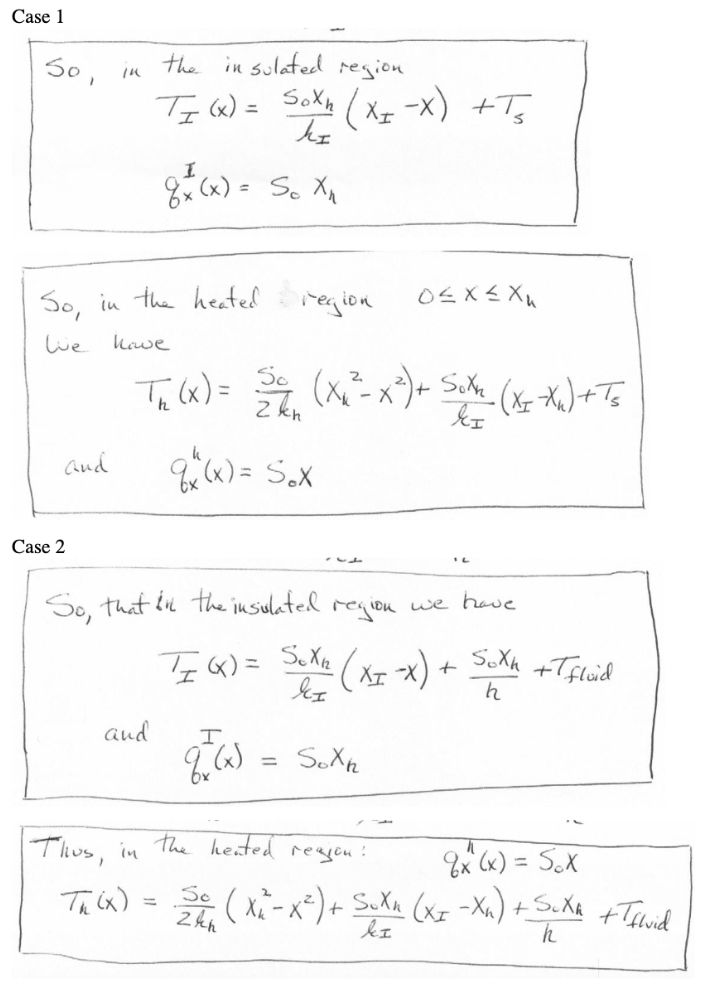 Case 1
So, in the insulated region
T_I (x) = S₀X_h / k_I (X_I - X) + T_s
q_x^I (x) = S₀ X_h
So, in the heated region 0 ≤ X ≤ X_h
We have
T_h (x) = S₀ / 2k_h (X_h² - x²) + S₀X_h / k_I (X_I - X_h) + T_s
and q_x^h (x) = S₀X
Case 2
So, that in the insulated region we have
T_I (x) = S₀X_h / k_I (X_I - X) + S₀X_h / h + T_fluid
and q_x^I (x) = S₀X_h
Thus, in the heated region: q_x^h (x) = S₀X
T_h (x) = S₀ / 2k_h (X_h² - x²) + S₀X_h / k_I (X_I - X_h) + S₀X_h / h + T_fluid